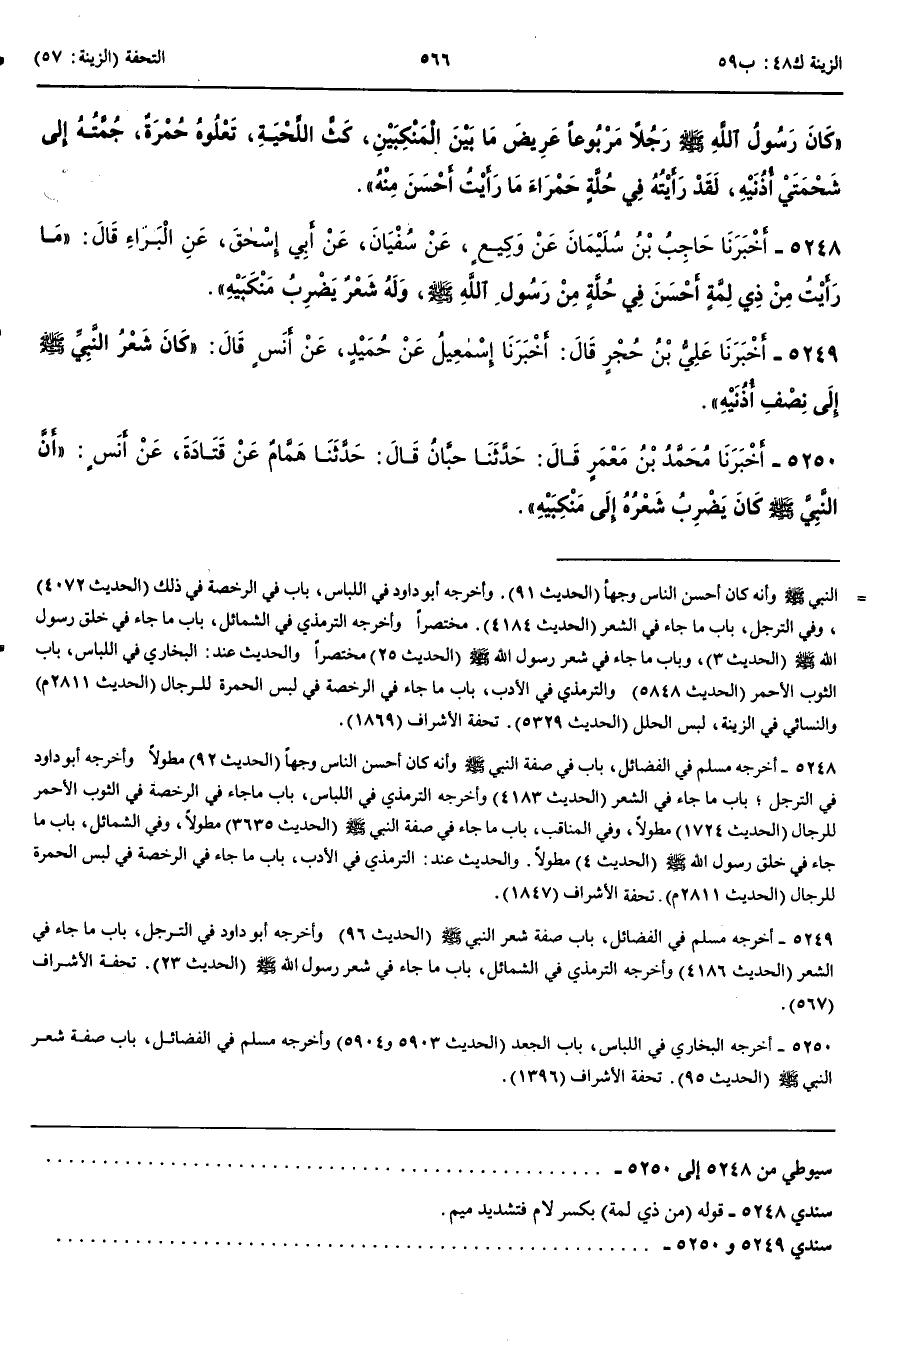 الزينة ك٤٨: ب٥٩ ٥٦٦ التحفة (الزينة: ٥٧)
«كَانَ رَسُولُ ٱللَّهِ ﷺ رَجُلاً مَرْبُوعاً عَرِيضَ مَا بَيْنَ الْمَنْكِبَيْنِ، كَثَّ اللِّحْيَةِ، تَعْلُوهُ حُمْرَةٌ، جُمَّتُهُ إِلى
شَحْمَتَيْ أُذُنَيْهِ، لَقَدْ رَأَيْتُهُ فِي حُلَّةٍ حَمْرَاءَ مَا رَأَيْتُ أَحْسَنَ مِنْهُ».
٥٢٤٨ ـ أَخْبَرَنَا حَاجِبُ بْنُ سُلَيْمَانَ عَنْ وَكِيعٍ، عَنْ سُفْيَانَ، عَنْ أَبِي إِسْحٰقَ، عَنِ الْبَرَاءِ قَالَ: «مَا
رَأَيْتُ مِنْ ذِي لِمَّةٍ أَحْسَنَ فِي حُلَّةٍ مِنْ رَسُولِ ٱللَّهِ ﷺ، وَلَهُ شَعْرٌ يَضْرِبُ مَنْكَبَيْهِ».
٥٢٤٩ ـ أَخْبَرَنَا عَلِيُّ بْنُ حُجْرٍ قَالَ: أَخْبَرَنَا إِسْمٰعِيلُ عَنْ حُمَيْدٍ، عَنْ أَنَسٍ قَالَ: «كَانَ شَعْرُ النَّبِيِّ ﷺ
إِلَى نِصْفِ أُذُنَيْهِ».
٥٢٥٠ ـ أَخْبَرَنَا مُحَمَّدُ بْنُ مَعْمَرٍ قَالَ: حَدَّثَنَا حَبَّانُ قَالَ: حَدَّثَنَا هَمَّامٌ عَنْ قَتَادَةَ، عَنْ أَنَسٍ: «أَنَّ
النَّبِيَّ ﷺ كَانَ يَضْرِبُ شَعْرُهُ إِلَى مَنْكِبَيْهِ».
= النبي ﷺ وأنه كان أحسن الناس وجهاً (الحديث ٩١). وأخرجه أبو داود في اللباس، باب في الرخصة في ذلك (الحديث ٤٠٧٢)
، وفي الترجل، باب ما جاء في الشعر (الحديث ٤١٨٤). مختصراً وأخرجه الترمذي في الشمائل، باب ما جاء في خلق رسول
الله ﷺ (الحديث ٣)، وباب ما جاء في شعر رسول الله ﷺ (الحديث ٢٥) مختصراً والحديث عند: البخاري في اللباس، باب
الثوب الأحمر (الحديث ٥٨٤٨) والترمذي في الأدب، باب ما جاء في الرخصة في لبس الحمرة للرجال (الحديث ٢٨١١م)
والنسائي في الزينة، لبس الحلل (الحديث ٥٣٢٩). تحفة الأشراف (١٨٦٩).
٥٢٤٨ ـ أخرجه مسلم في الفضائل، باب في صفة النبي ﷺ وأنه كان أحسن الناس وجهاً (الحديث ٩٢) مطولاً وأخرجه أبو داود
في الترجل ؛ باب ما جاء في الشعر (الحديث ٤١٨٣) وأخرجه الترمذي في اللباس، باب ماجاء في الرخصة في الثوب الأحمر
للرجال (الحديث ١٧٢٤) مطولاً، وفي المناقب، باب ما جاء في صفة النبي ﷺ (الحديث ٣٦٣٥) مطولاً، وفي الشمائل، باب ما
جاء في خلق رسول الله ﷺ (الحديث ٤) مطولاً. والحديث عند: الترمذي في الأدب، باب ما جاء في الرخصة في لبس الحمرة
للرجال (الحديث ٢٨١١م). تحفة الأشراف (١٨٤٧).
٥٢٤٩ ـ أخرجه مسلم في الفضائل، باب صفة شعر النبي ﷺ (الحديث ٩٦) وأخرجه أبو داود في الترجل، باب ما جاء في
الشعر (الحديث ٤١٨٦) وأخرجه الترمذي في الشمائل، باب ما جاء في شعر رسول الله ﷺ (الحديث ٢٣). تحفة الأشراف
(٥٦٧).
٥٢٥٠ ـ أخرجه البخاري في اللباس، باب الجعد (الحديث ٥٩٠٣ و٥٩٠٤) وأخرجه مسلم في الفضائل، باب صفة شعر
النبي ﷺ (الحديث ٩٥). تحفة الأشراف (١٣٩٦).
سيوطي من ٥٢٤٨ إلى ٥٢٥٠ ـ ..................................................
سندي ٥٢٤٨ ـ قوله (من ذي لمة) بكسر لام فتشديد ميم.
سندي ٥٢٤٩ و ٥٢٥٠ ـ ..................................................